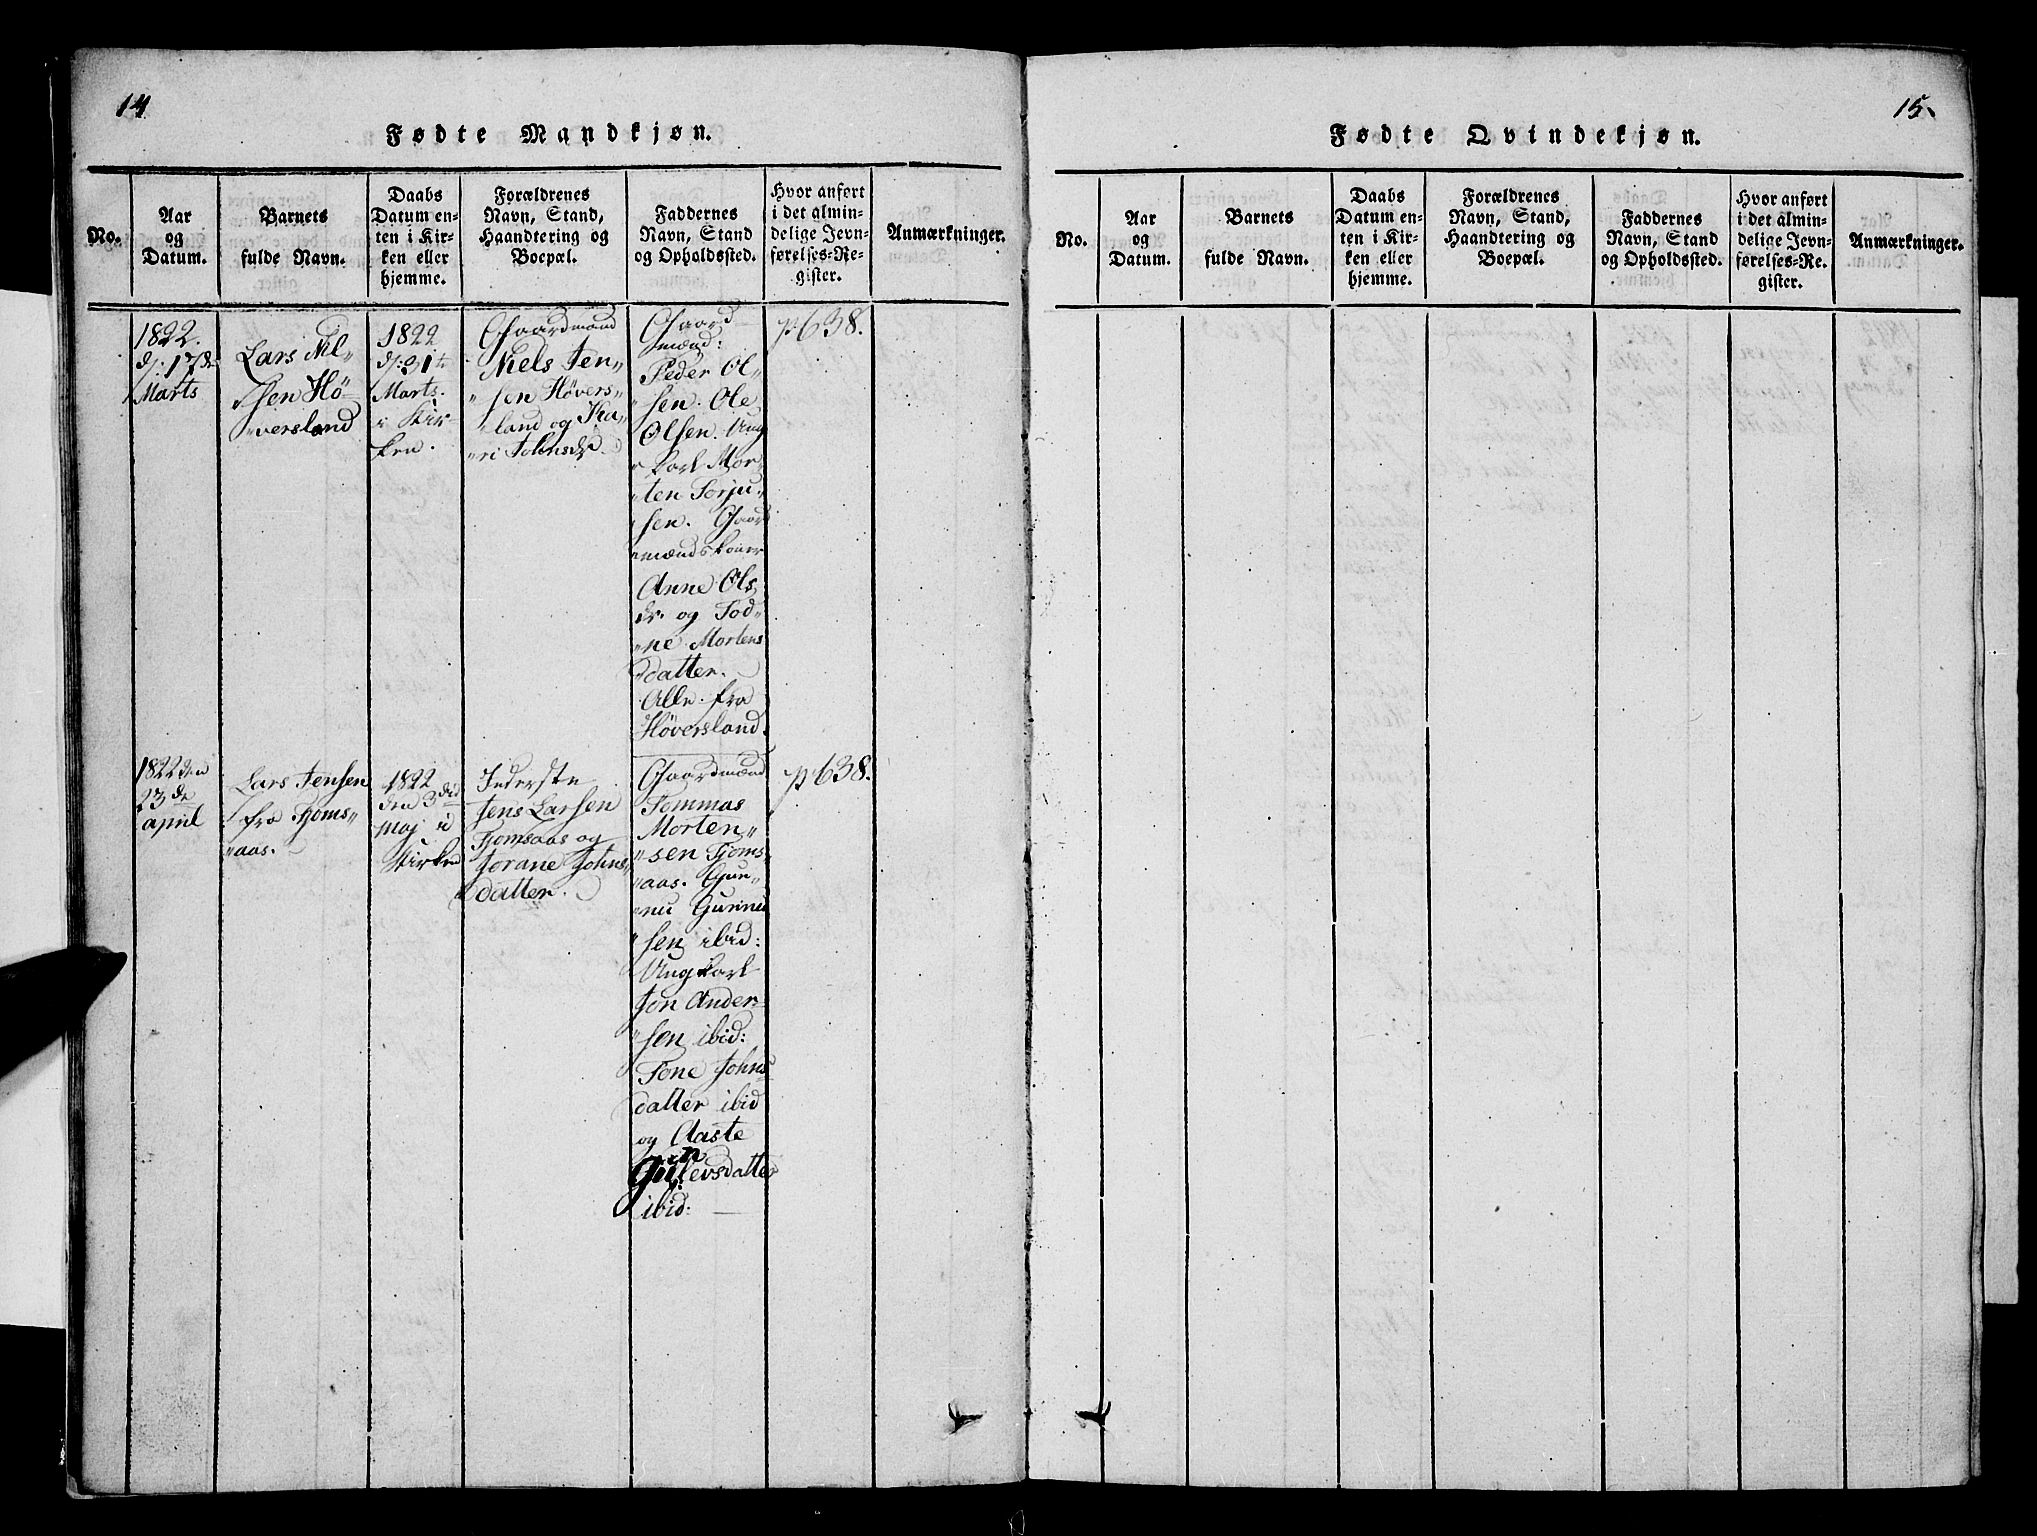 14
Fødte Mandkjøn.
No.
Aar
og
Datum.
Barnets
fulde Navn.
Daabs
Datum en-
ten i Kir-
ken eller
hjemme.
Forældrenes
Navn, Stand,
Haandtering og
Boepæl.
Faddernes
Navn, Stand
og Opholdssted.
Hvor anført
i det almin-
delige Jevn-
førelses-Re-
gister.
Anmærkninger.
1822.
d: 17de
Marts
Lars Nil-
sen Hö-
versland
1822
d: 31te
Marts.
i Kir-
ken.
Gaardmand
Niels Jen-
sen Høvers-
land og Ka-
ri Johnsdr.
Gaard
mænd:
Peder Ol-
sen. Ole
Olsen. Ung
karl Mor-
ten Torju-
sen. Gaard
mændskoner
Anne Ols
dr. og Tod-
ne Mortens
datter.
Alle fra
Høversland.
p 638.
1822 den
23de
april
Lars Jensen
fra Tjoms-
aas.
1822
den 3die
maj i
Kirken
Inderste
Jens Larsen
Tjomsaas og
Jorane Johns
datter.
Gaardmænd
Tommas
Morten-
sen Tjoms
aas. Gun-
nu Gunnu
sen ibid:
Ungkarl
Jon Ander-
sen ibid:
Tone Johns
datter ibid
og Aaste
Gunlevsdatter
ibid:
p 638.
15.
Fødte Qvindekjøn.
No.
Aar
og
Datum.
Barnets
fulde Navn.
Daabs
Datum en-
ten i Kir-
ken eller
hjemme.
Forældrenes
Navn, Stand,
Haandtering og
Boepæl.
Faddernes
Navn, Stand
og Opholdssted.
Hvor anført
i det almin-
delige Jevn-
førelses-Re-
gister.
Anmærkninger.